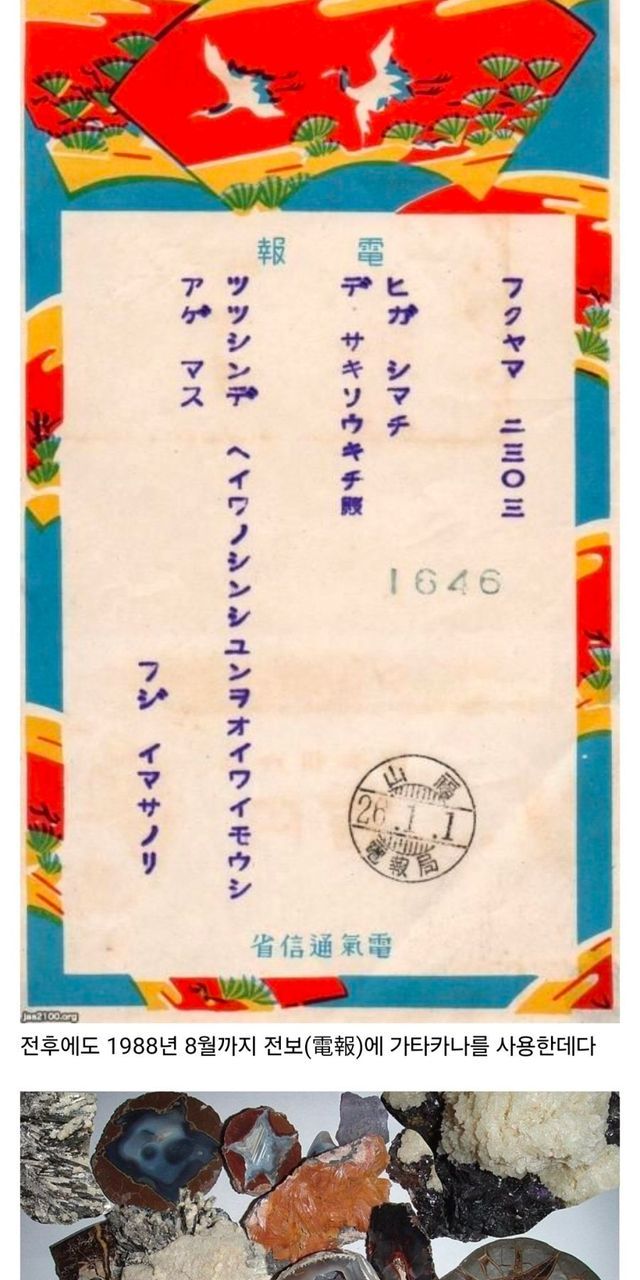 電報
フクヤマ 二三〇三
ヒガ シマチ
デ サキソウキチ殿
ツツシンデ ヘイワノシンシユンヲオイワイモウシ
アゲ マス
フジ イマサノリ
1646
福山
26.1.1
電報局
電氣通信省
jaa2100.org
전후에도 1988년 8월까지 전보(電報)에 가타카나를 사용한데다